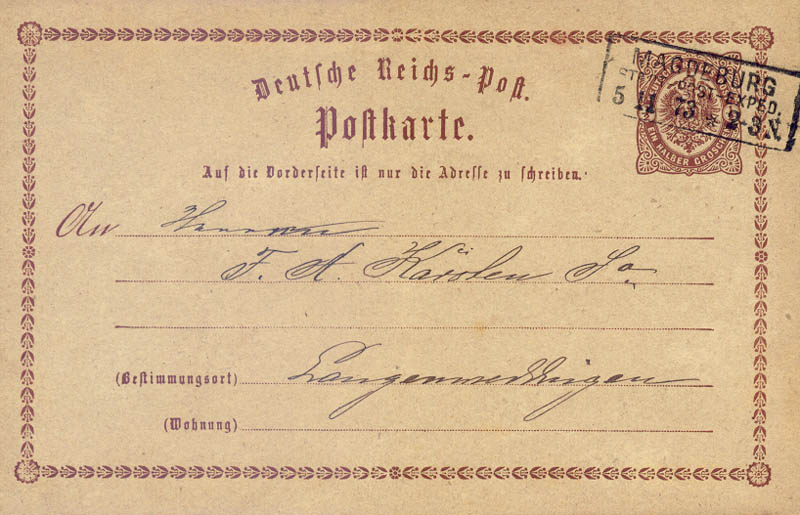 Deutsche Reichs-Post.
Postkarte.
Auf die Vorderseite ist nur die Adresse zu schreiben.
MAGDEBURG
POST-EXPED.
5 11 73 2-3N.
EIN HALBER GROSCHEN
An Herrn
F. A. Karsten
(Bestimmungsort) Langenweddingen
(Wohnung)